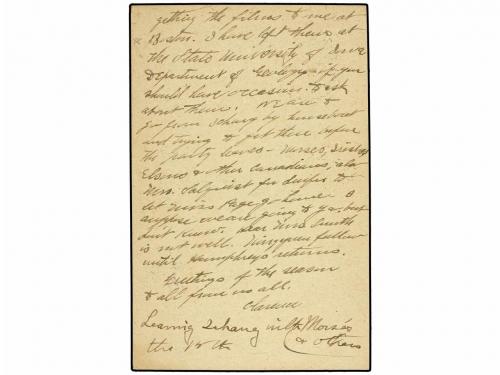 getting the films to me at
Boston. I have left them at
the State University of Iowa
Department of Geology if you
should have occasion to ask
about them. We are to
go from Ichang by houseboat
and trying to get there before
the party leaves - nurses,
& other Canadians, also
Mrs. for to
let Miss Page go home. I
suppose we are going to but
don't know. Dear Mrs. Smith
is not well. follow
until Humphreys returns.
Greetings of the season
to all from us all.
Clarence
Leaving Ichang with Moisés
& others
the 15th